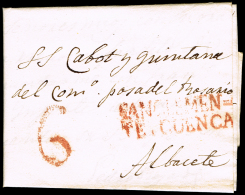 SS Cabot y quintana
del Comº. posada del Rosario
6
SANCLEMEN=
TE, CUENCA
Albacete